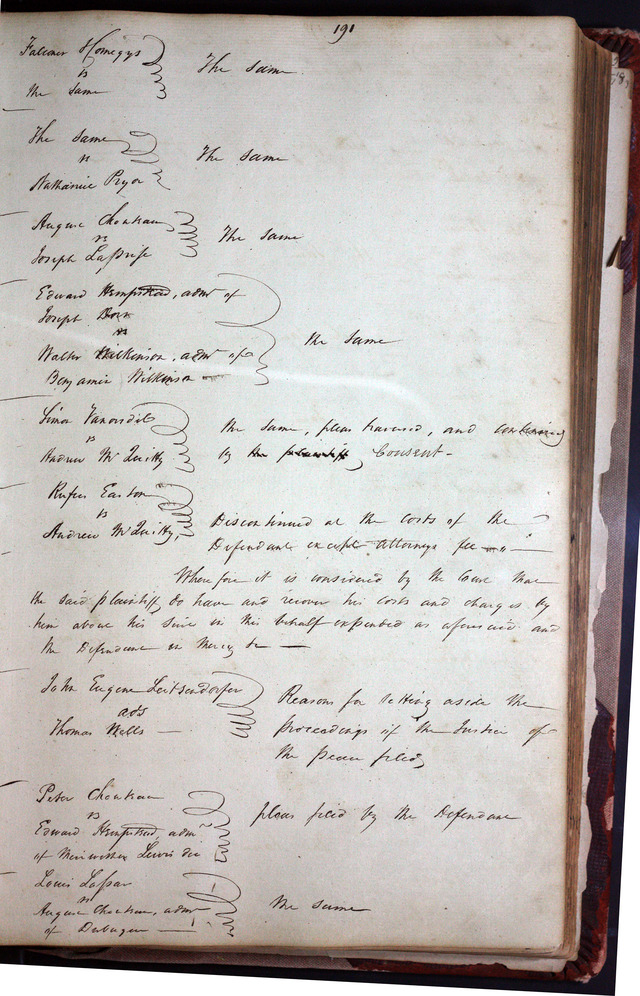 191
Falconer & Comegys
vs
the same
The same
The same
vs
Nathaniel Pryor
The same
Auguse Choteau
vs
Joseph Laprise
The same
Edward Hempstead, admr of
Joseph
vs
Walter Wilkinson, admr of
Benjamin Wilkinson
the same
Simon Vanorsdel
vs
Andrew McQuitty
the same, pleas traversed, and
by the plaintiff, Consent -
Rufus Easton
vs
Andrew McQuitty,
Discontinued at the costs of the
Defendant except attorneys fee
Wherefore it is considered by the Court that
the said plaintiff, do have and recover his costs and charges by
him about his suit in this behalf expended as aforesaid and
the Defendant in Mercy &c —
John Eugene Leitsendorfer
ads
Thomas Wells —
Reasons for setting aside the
proceedings of the Justice of
the peace filed,
Peter Chouteau
vs
Edward Hempstead, admr
of Meriwether Lewis
pleas filed by the Defendant
Louis
vs
Auguse Choteau, admr
of Dubuque —
the same